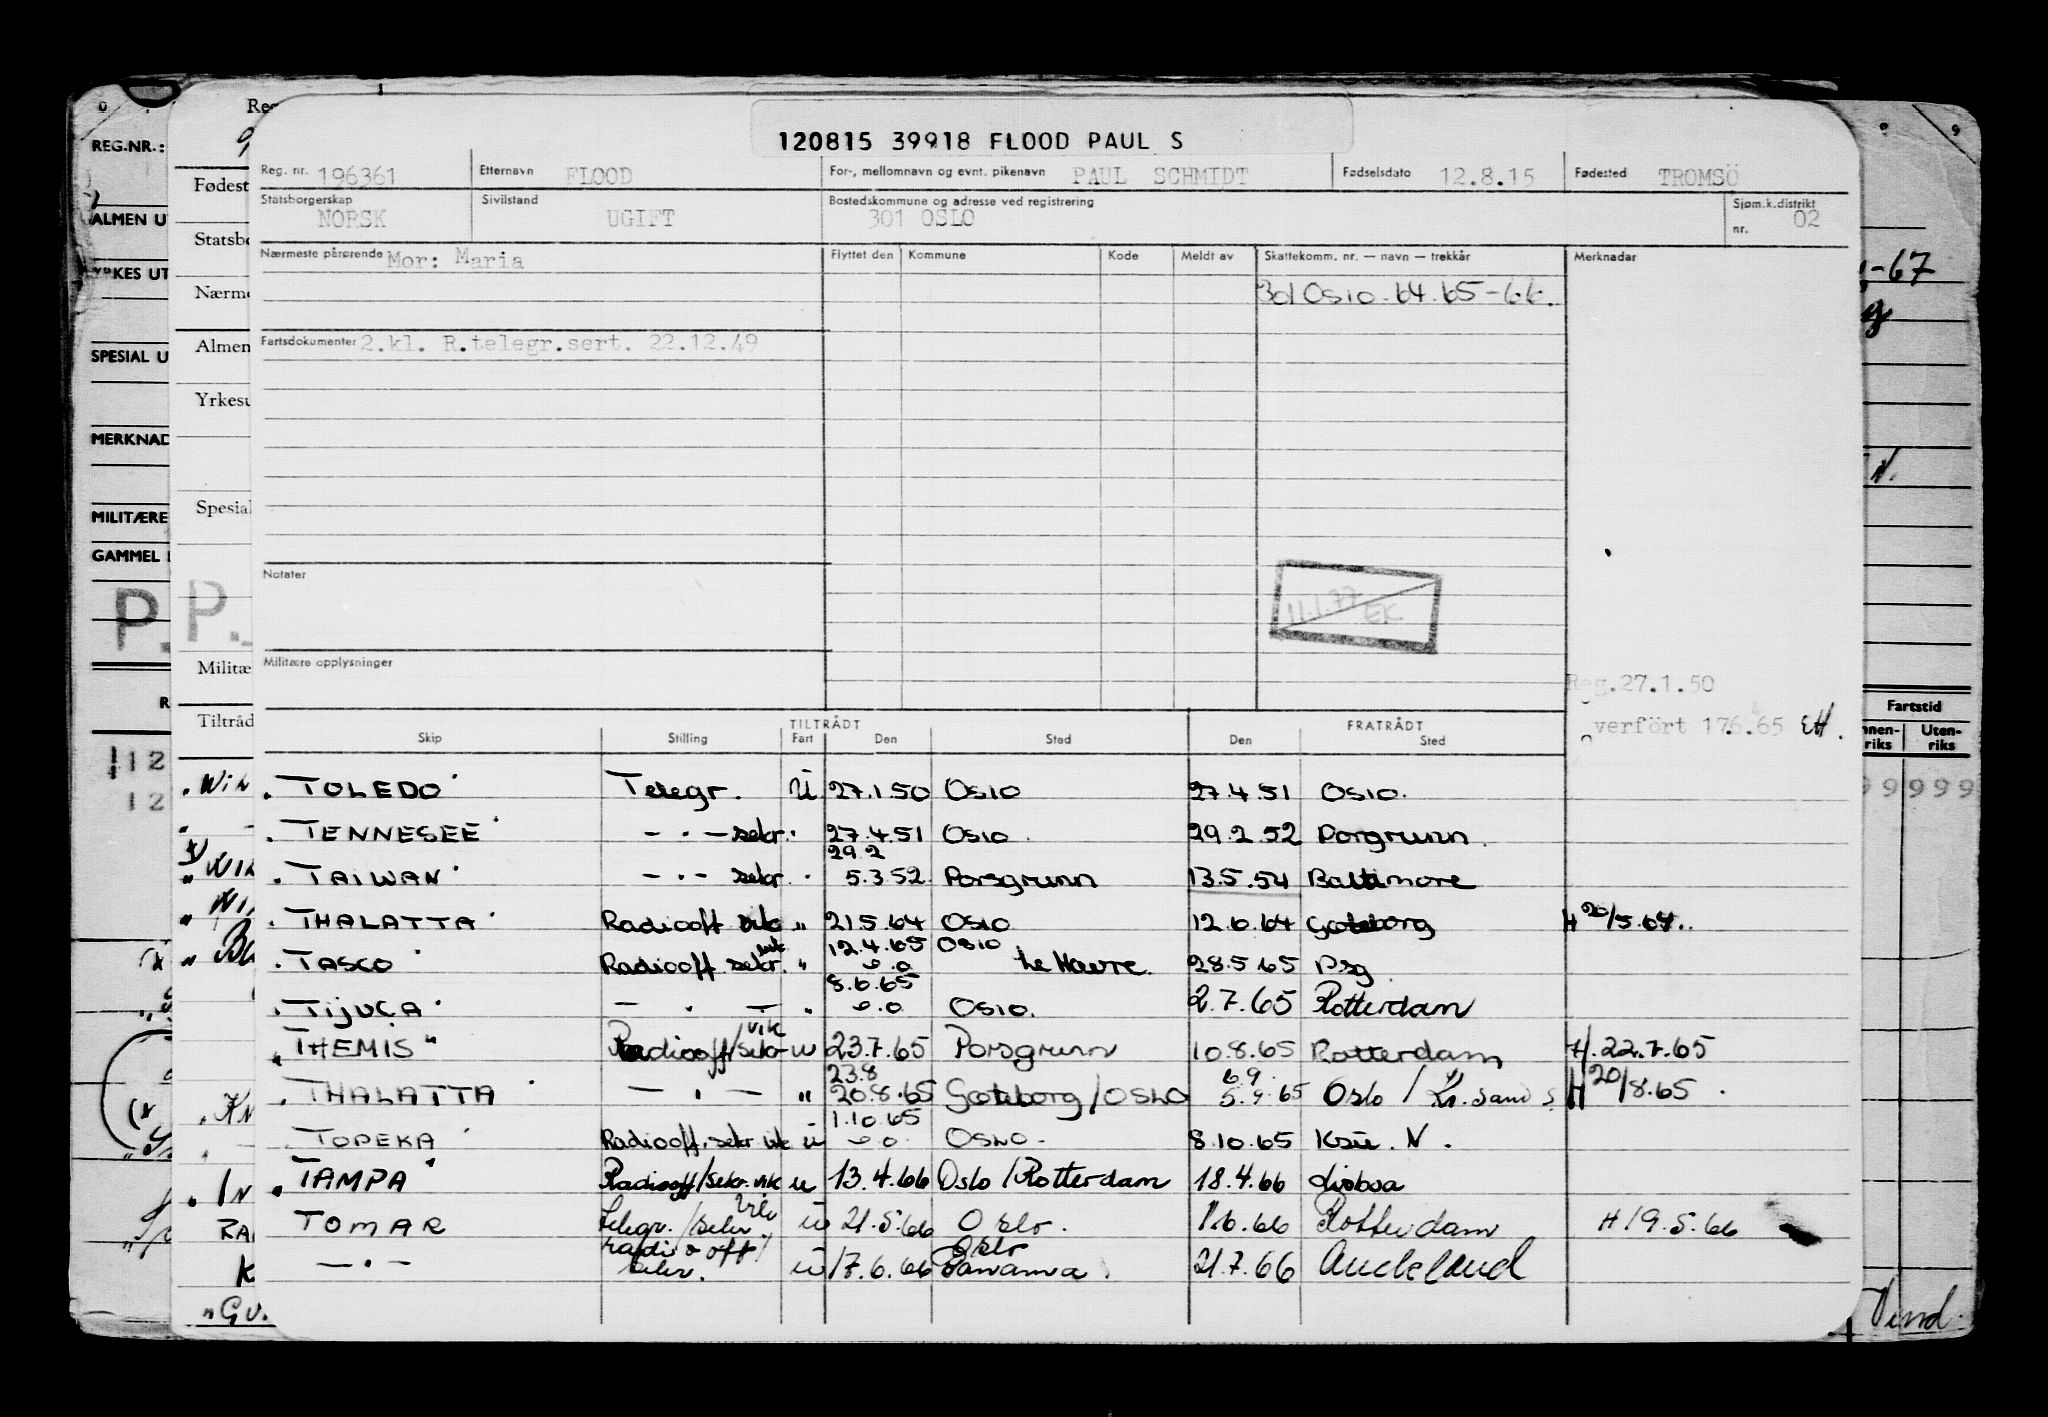 120815 39918 FLOOD PAUL S
Reg. nr. 196361 Etternavn FLOOD For-, mellomnavn og evnt. pikenavn PAUL SCHMIDT Fødselsdato 12.8.15 Fødested TROMSÖ
Statsborgerskap NORSK Sivilstand UGIFT Bostedskommune og adresse ved registrering 301 OSLO Sjøm.k.distrikt nr. 02
Nærmeste pårørende Mor: Maria Flyttet den Kommune Kode Meldt av Skattekomm. nr. — navn — trekkår Merknader
301 Oslo. 64. 65-66.
Fartsdokumenter 2.kl. R.telegr.sert. 22.12.49
Notater
11.1.77 EK
Militære opplysninger
Reg.27.1.50
verfört 176.65 EH.
TILTRÅDT FRATRÅDT
Skip Stilling Fart Den Sted Den Sted
TOLEDO Telegr. U 27.1.50 Oslo 27.4.51 Oslo.
TENNESEE — · — sekr. 27.4.51 Oslo 29.2.52 Porsgrunn.
29.2
TAIWAN — · — sekr 5.3.52. Porsgrunn 13.5.54 Baltimore
THALATTA Radiooff " 21.5.64 Oslo 12.6.64 Gøteborg H 20/5.64.
12.4.65 Oslo
TASCO Radiooff sekr. " Le Havre 28.5.65 Psg
8.6.65
TIJUCA — · — " Oslo. 2.7.65 Rotterdam
THEMIS Radiooff/sekr vik u 23.7.65 Porsgrunn 10.8.65 Rotterdam H. 22.7.65
23.8 6.9
THALATTA — · — " 20.8.65 Gøteborg / OSLO 5.9.65 Oslo / Kr.sand S H 20/8.65
1.10.65
TOPEKA Radiooff. sekr. vik u Oslo. 8.10.65 Ksu. N.
TAMPA Radiooff/sekr. vik u 13.4.66 Oslo / Rotterdam 18.4.66 Lisboa
TOMAR telegr./sekr. vik u 21.5.66 Oslo. 1.6.66 Rotterdam H 19.5.66
— · — radiooff/ sekr. u 17.6.66 Oslo Panama 21.7.66 Auckland
REG.NR.:
ALMEN U
YRKES UT
SPESIAL U
MERKNAD
MILITÆRE
GAMMEL
P.
Reg
Fødest
Statsbo
Nærme
Almen
Yrkesu
Spesial
P.
Militæ
Tiltråd
-67
N.
Fartstid
Uten-
riks
riks
999